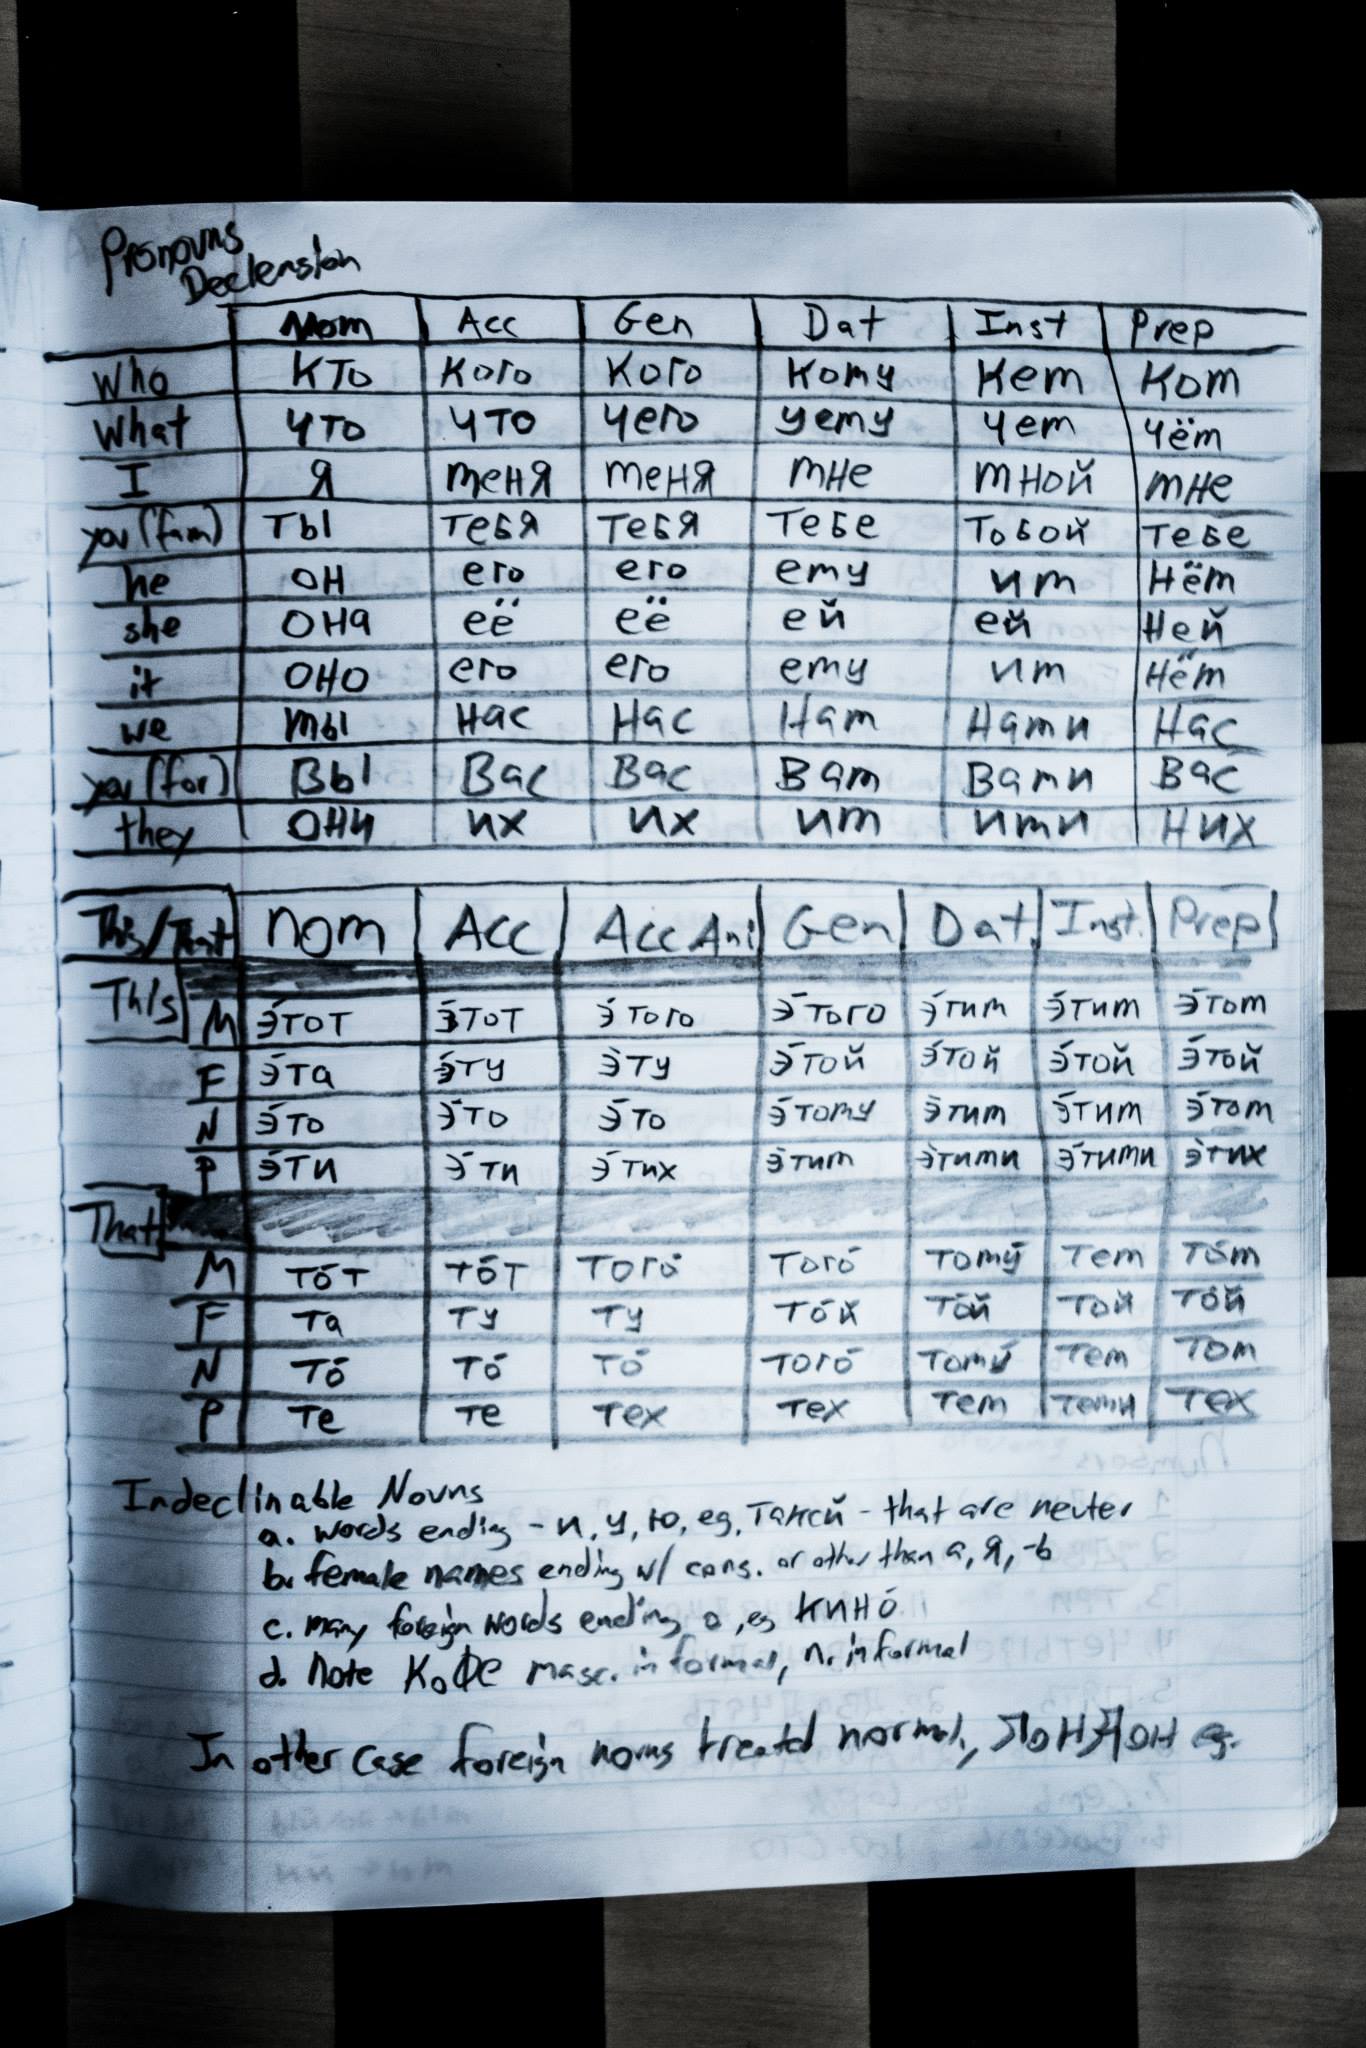 Pronouns
Declension
Nom Acc Gen Dat Inst Prep
Who кто кого кого кому кем ком
What что что чего чему чем чём
I я меня меня мне мной мне
you (fam) ты тебя тебя тебе тобой тебе
he он его его ему им нём
she она её её ей ей ней
it оно его его ему им нём
we мы нас нас нам нами нас
you (for) вы вас вас вам вами вас
they они их их им ими них
This/That nom Acc Acc Ani Gen Dat Inst. Prep
This
M э́тот э́тот э́того э́того э́тим э́тим э́том
F э́та э́ту э́ту э́той э́той э́той э́той
N э́то э́то э́то э́тому э́тим э́тим э́том
P э́ти э́ти э́тих э́тим э́тими э́тими э́тих
That
M то́т то́т того́ того́ тому́ тем то́м
F та ту ту то́й то́й той то́й
N то́ то́ то́ того́ тому́ тем том
P те те тех тех тем теми тех
Indeclinable Nouns
a. words ending - и, у, ю, eg, таксй - that are neuter
b. female names ending w/ cons. or other than а, я, -ь
c. many foreign words ending о, eg кино́
d. Note Кофе masc. in formal, n. informal
In other case foreign nouns treated normal, Лондон eg.